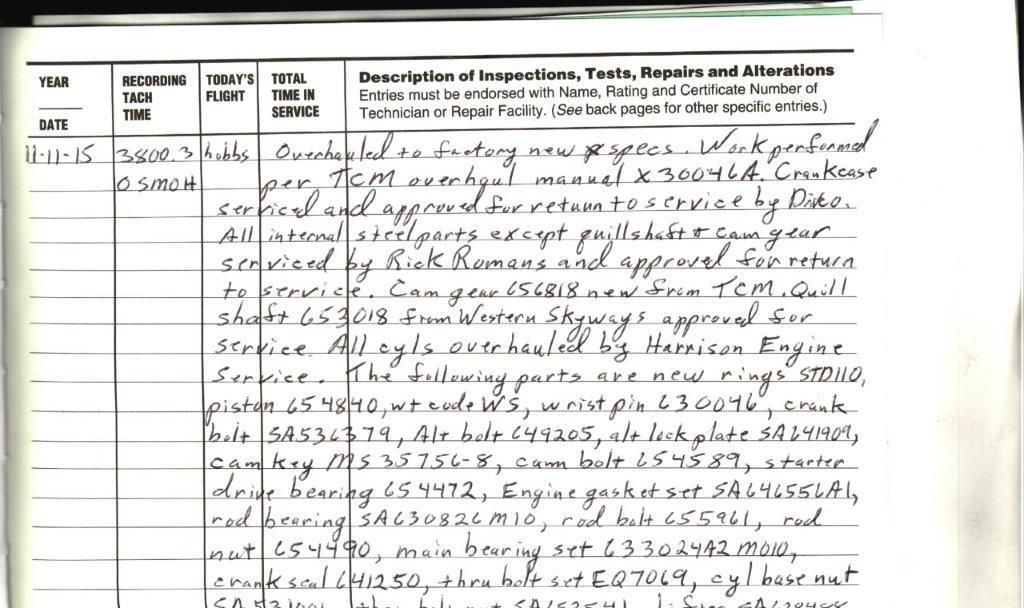 YEAR
DATE
RECORDING TACH TIME
TODAY'S FLIGHT
TOTAL TIME IN SERVICE
Description of Inspections, Tests, Repairs and Alterations
Entries must be endorsed with Name, Rating and Certificate Number of
Technician or Repair Facility. (See back pages for other specific entries.)
11-11-15 3800.3 hobbs Overhauled to factory new specs. Work performed
0 SMOH per TCM overhaul manual X30046A. Crankcase
serviced and approved for return to service by Divco.
All internal steel parts except quillshaft + cam gear
serviced by Rick Romans and approved for return
to service. Cam gear 656818 new from TCM. Quill
shaft 653018 from Western Skyways approved for
service. All cyls overhauled by Harrison Engine
Service. The following parts are new rings STD110,
piston 654840, wt code WS, wrist pin 630046, crank
bolt SA536379, Alt bolt 649205, alt lock plate SA641909,
cam key MS35756-8, cam bolt 654589, starter
drive bearing 654472, Engine gasket set SA646556A1,
rod bearing SA630826M10, rod bolt 655961, rod
nut 654490, main bearing set 633024A2M010,
crank seal 641250, thru bolt set EQ7069, cyl base nut